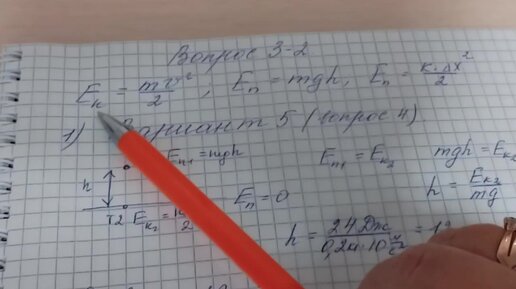 Вопрос 3-2
Eк = mv²/2, Eп = mgh, Eп = к·Δx²/2
1) Вариант 5 (вопрос 4)
Eп1 = mgh
Eп1 = Eк2
mgh = Eк2
h
h = Eк2/mg
Eп = 0
Т2 Eк2 =
h = 24 Дж